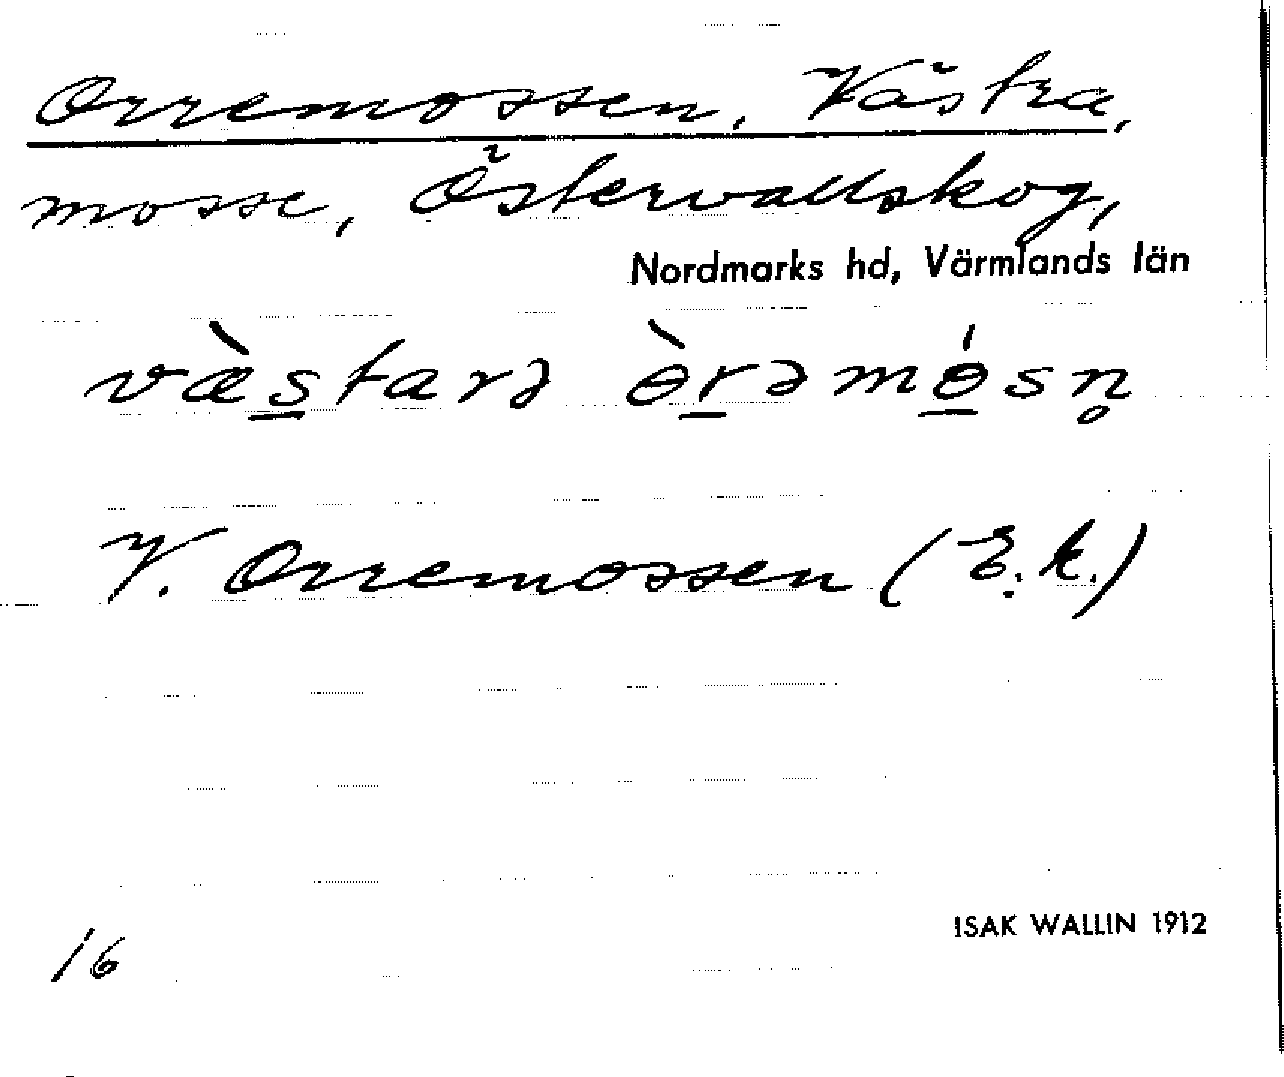 Orremossen, Västra,
mosse, Östervallskog,
Nordmarks hd, Värmlands län
væ̀s̲tarə ɵ̀r̲əmɵ̲́sn̥
V. Orremossen (E.k.)
16
ISAK WALLIN 1912